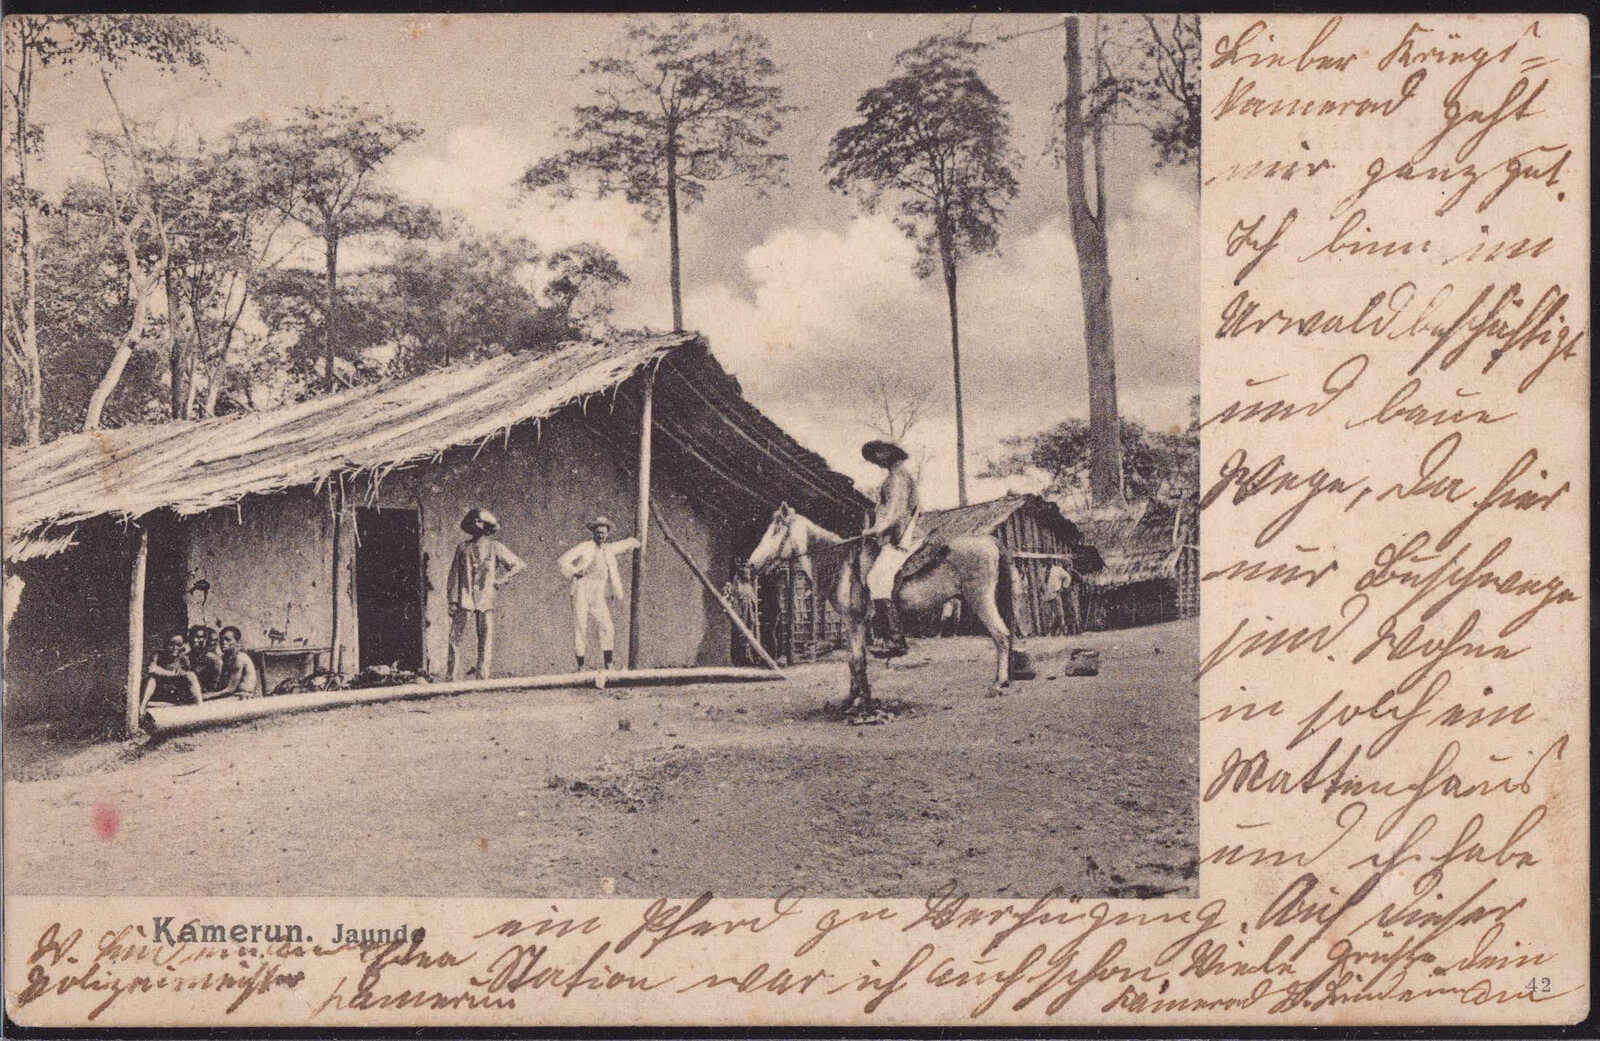 Lieber Kriegs=
kamerad geht
mir ganz gut.
Ich binn im
Urwald beschäftigt
und baue
Wege, da hier
nur Buschwege
sind. Wohne
in solch ein
Mattenhaus
und ich habe
ein Pferd zu Verfügung. Auf dieser
Station war ich auch schon. Viele Grüße dein
Kamerad W. Lindemann
Kamerun. Jaunde
W. Lindemann Edea
Polizeimeister
Kamerun
42